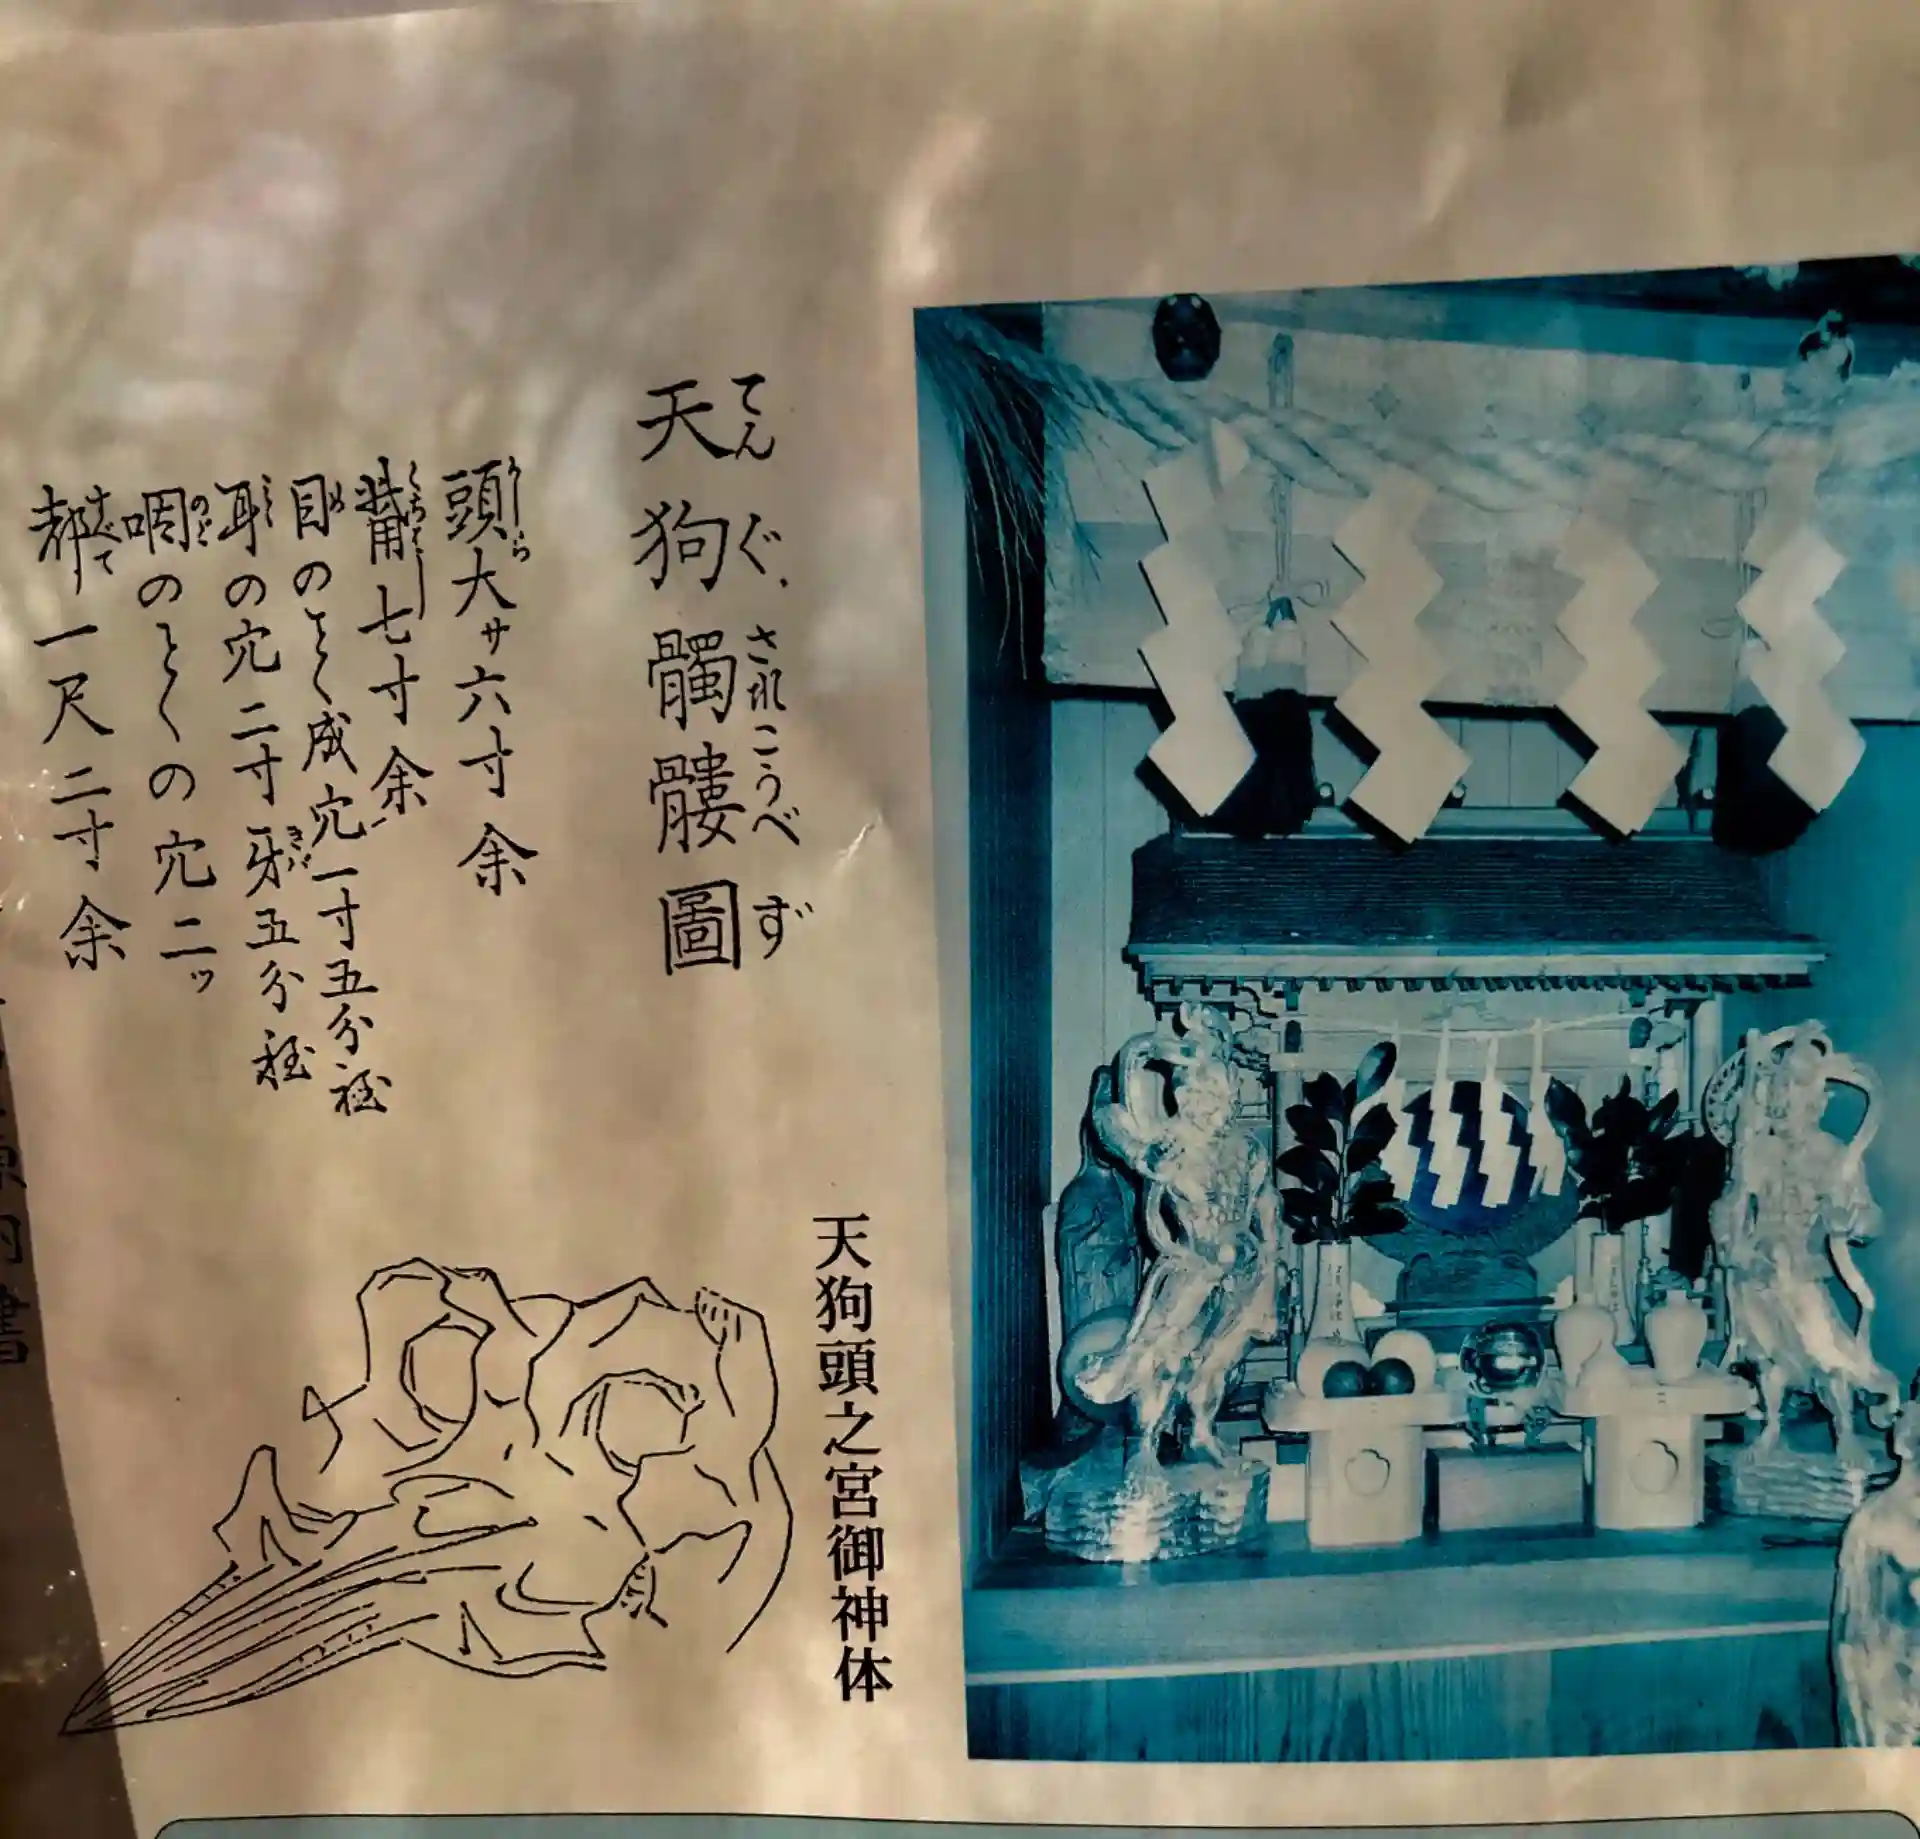 天狗髑髏圖
てんぐ されこうべ ず
頭大サ六寸余
觜七寸余
目のとく成穴一寸五分程
耳の穴二寸牙五分程
咽のとくの穴二ッ
都一尺二寸余
すべて
きバ
天狗頭之宮御神体